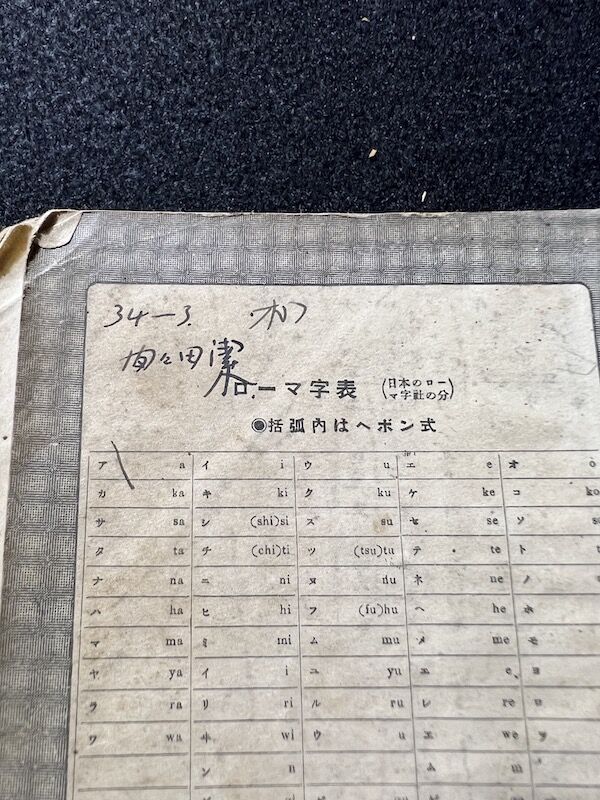 34-3.
田潔
ローマ字表 (日本のローマ字社の分)
◉括弧內はヘボン式
ア a イ i ウ u エ e オ o
カ ka キ ki ク ku ケ ke コ ko
サ sa シ (shi)si ス su セ se ソ
タ ta チ (chi)ti ツ (tsu)tu テ te ト t
ナ na ニ ni ヌ nu ネ ne ノ
ハ ha ヒ hi フ (fu)hu ヘ he ホ
マ ma ミ mi ム mu メ me モ
ヤ ya イ i ユ yu エ e ヨ
ラ ra リ ri ル ru レ re ロ
ワ wa ヰ wi ウ u ヱ we ヲ
ン n ム m